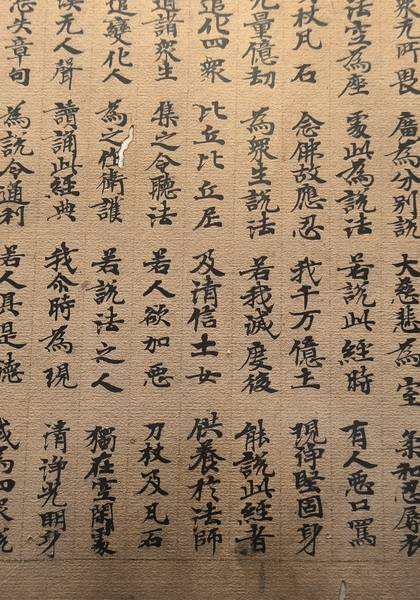 衆无所畏 廣為分別說 大慈悲為室 柔和忍辱衣
法空為座 處此為說法 若說此經時 有人惡口罵
杖瓦石 念佛故應忍 我千万億土 現淨堅固身
无量億劫 為衆生說法 若我滅度後 能說此經者
遣化四衆 比丘比丘尼 及清信士女 供養於法師
導諸衆生 集之令聽法 若人欲加惡 刀杖及瓦石
遣變化人 為之作衛護 若說法之人 獨在空閑處
漠无人聲 讀誦此經典 我尒時為現 清淨光明身
忘失章句 為說令通利 若人具是德 或為四衆說